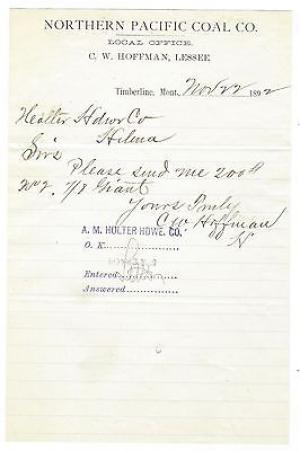 NORTHERN PACIFIC COAL CO.
LOCAL OFFICE.
C. W. HOFFMAN, LESSEE
Timberline, Mont., Nov 22 1892
Healter Hdwr Co
Hilena
Sirs
Please send me 200 #
No 2. 7/8 Giant
Yours Truly
CW Hoffman
H
A. M. HOLTER HDWE. CO.
O. K.
Entered
Answered